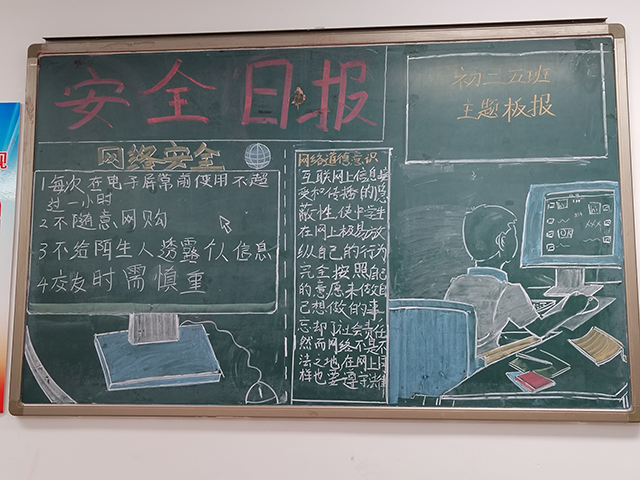 安全日报
初二五班
主题板报
网络安全
1每次在电子屏常前使用不超
过一小时
2不随意网购
3不给陌生人透露个人信息
4交友时需慎重
网络道德意识
互联网上信息
受和传播的隐
蔽性,使中学生
在网上极易放
纵自己的行为
完全按照自己
的意愿来做自
己想做的事
忘却了社会责任
然而网络不是不
法之地在网上同
样也要遵守法律